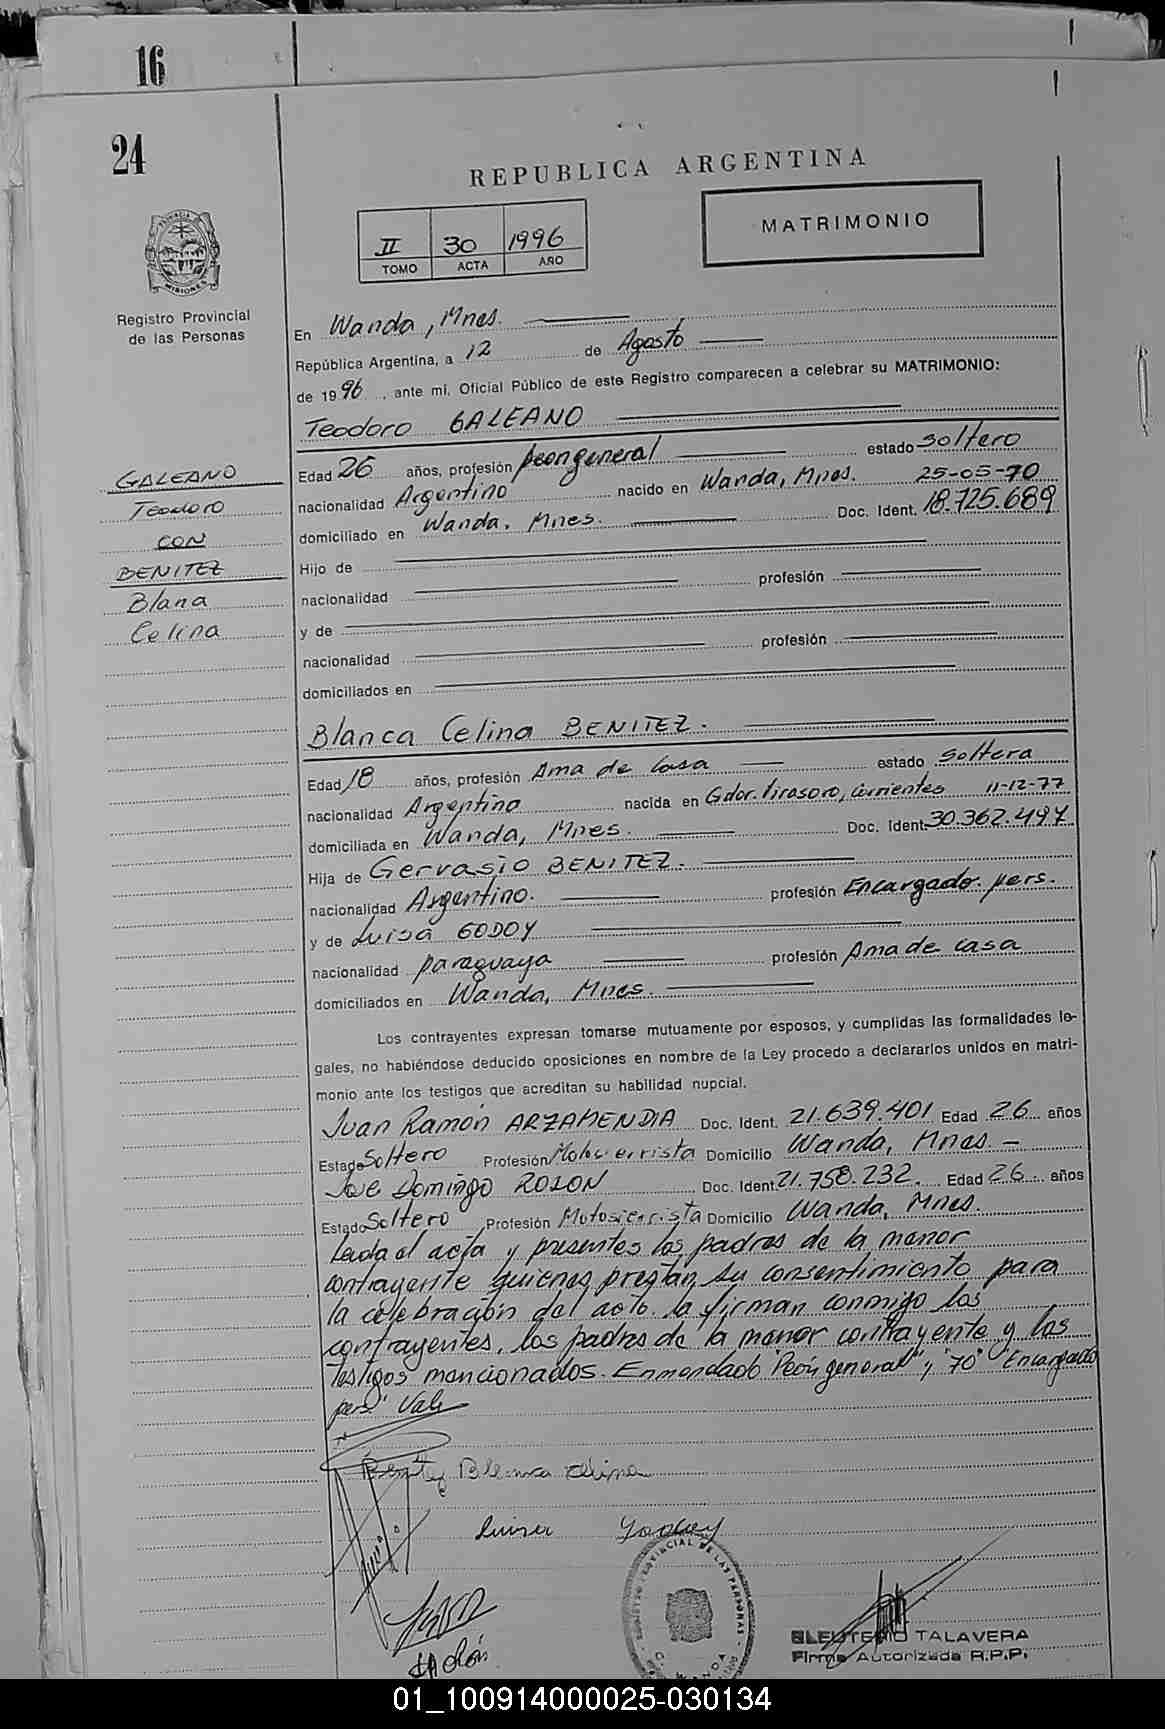 16
24
REPUBLICA ARGENTINA
II 30 1996
TOMO ACTA AÑO
MATRIMONIO
Registro Provincial
de las Personas
GALEANO
Teodoro
CON
BENITEZ
Blana
Celina
En Wanda, Mnes.
República Argentina, a 12 de Agosto
de 1996, ante mi, Oficial Público de este Registro comparecen a celebrar su MATRIMONIO:
Teodoro GALEANO
Edad 26 años, profesión Peon general estado soltero
nacionalidad Argentino nacido en Wanda, Mnes. 25-05-70
domiciliado en Wanda. Mnes. Doc. Ident. 18.725.689
Hijo de
nacionalidad profesión
y de
nacionalidad profesión
domiciliados en
Blanca Celina BENITEZ.
Edad 18 años, profesión Ama de casa estado soltera
nacionalidad Argentina nacida en Gdor. Virasoro, Corrientes 11-12-77
domiciliada en Wanda, Mnes. Doc. Ident. 30.362.497
Hija de Gervasio BENITEZ.
nacionalidad Argentino. profesión Encargado. pers.
y de Luisa GODOY
nacionalidad paraguaya profesión Ama de casa
domiciliados en Wanda, Mnes.
Los contrayentes expresan tomarse mutuamente por esposos, y cumplidas las formalidades le-
gales, no habiéndose deducido oposiciones en nombre de la Ley procedo a declararlos unidos en matri-
monio ante los testigos que acreditan su habilidad nupcial.
Juan Ramón ARZAMENDIA Doc. Ident. 21.639.401 Edad 26 años
Estado Soltero Profesión Domicilio Wanda, Mnes.
José Domingo ROLON Doc. Ident. 21.758.232. Edad 26 años
Estado Soltero Profesión Motosierrista Domicilio Wanda, Mnes.
Leida el acta y presentes los padres de la menor
contrayente quienes prestan su consentimiento para
la celebración del acto. la firman conmigo los
contrayentes, los padres de la menor contrayente y los
testigos mencionados. Enmendado "Peón general" y "70" "Encargado
pers." Vale
Benitez Blanca Celina
Luisa Godoy
REGISTRO PROVINCIAL DE LAS PERSONAS
WANDA
ELEUTERIO TALAVERA
Firma Autorizada R.P.P.
01_100914000025-030134